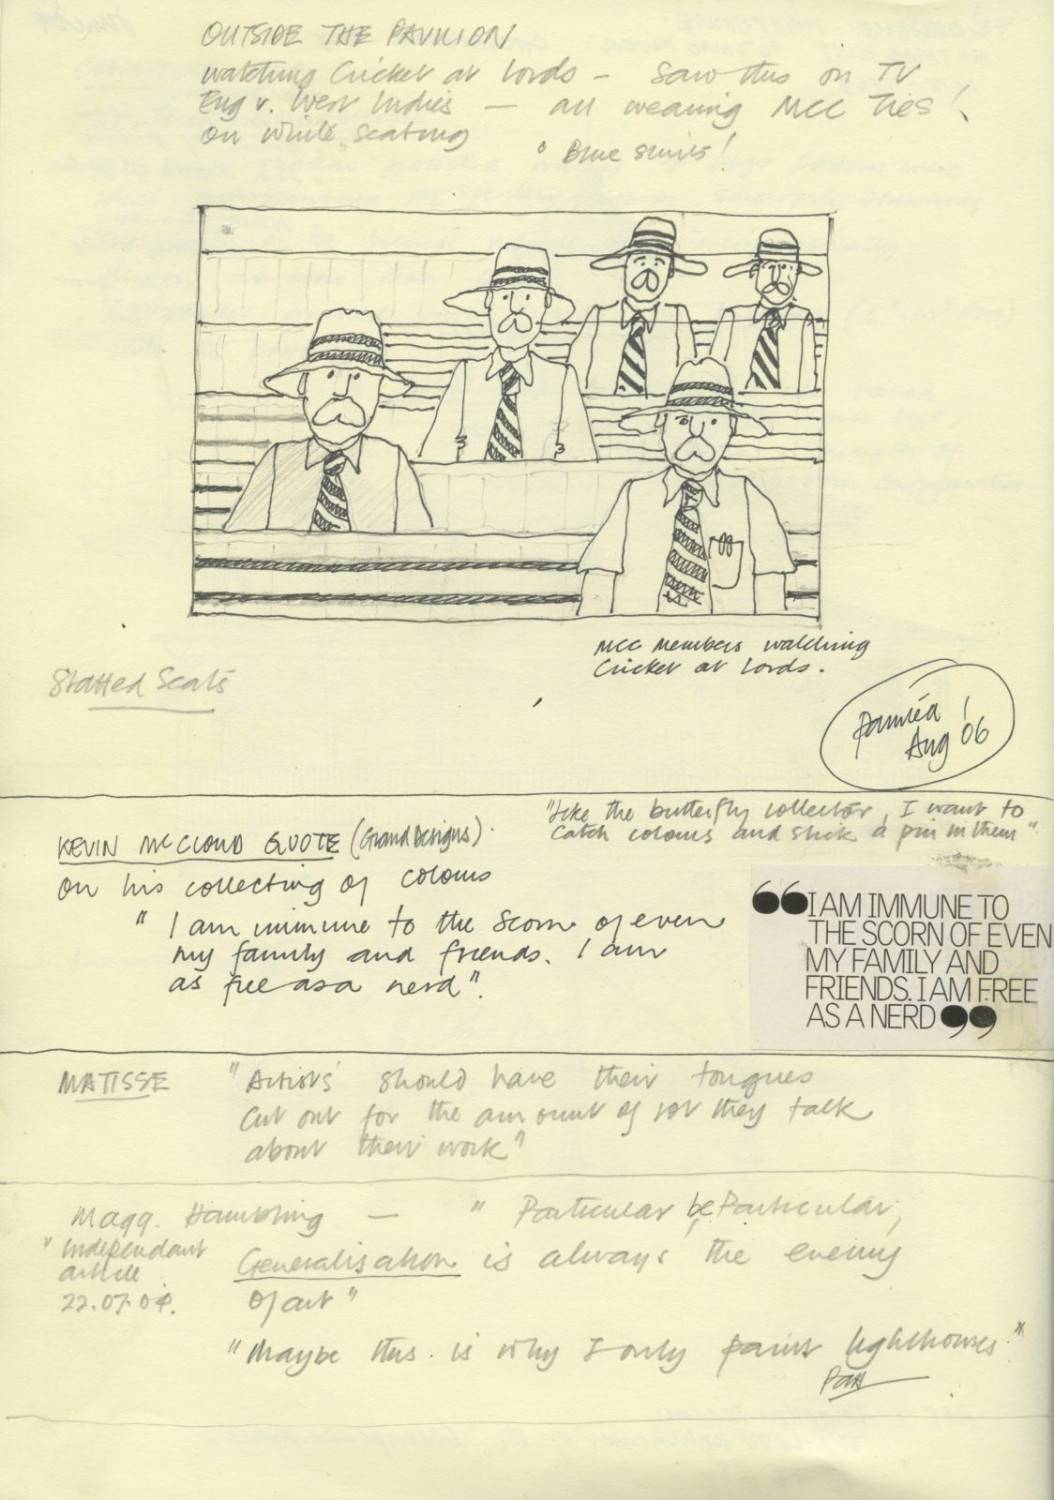 OUTSIDE THE PAVILION
watching Cricket at Lords - saw this on TV
Eng v. West Indies — all wearing MCC Ties!
on white seating
° Blue Skies!
MCC Members watching
Cricket at Lords.
Slatted Seats
painted!
Aug 06
"Like the butterfly collector, I want to
catch colours and stick a pin in them"
KEVIN McCLOUD QUOTE (Grand Designs).
on his collecting of colours
" I am immune to the scorn of even
my family and friends. I am
as free as a nerd".
❝I AM IMMUNE TO
THE SCORN OF EVEN
MY FAMILY AND
FRIENDS. I AM FREE
AS A NERD❞
MATISSE "Artists should have their tongues
cut out for the amount of rot they talk
about their work"
Magg. Hambling — " Particular, be Particular,
" Independant
article
22.07.04.
Generalisation is always the enemy
of art "
"Maybe this is why I only paint lighthouses"